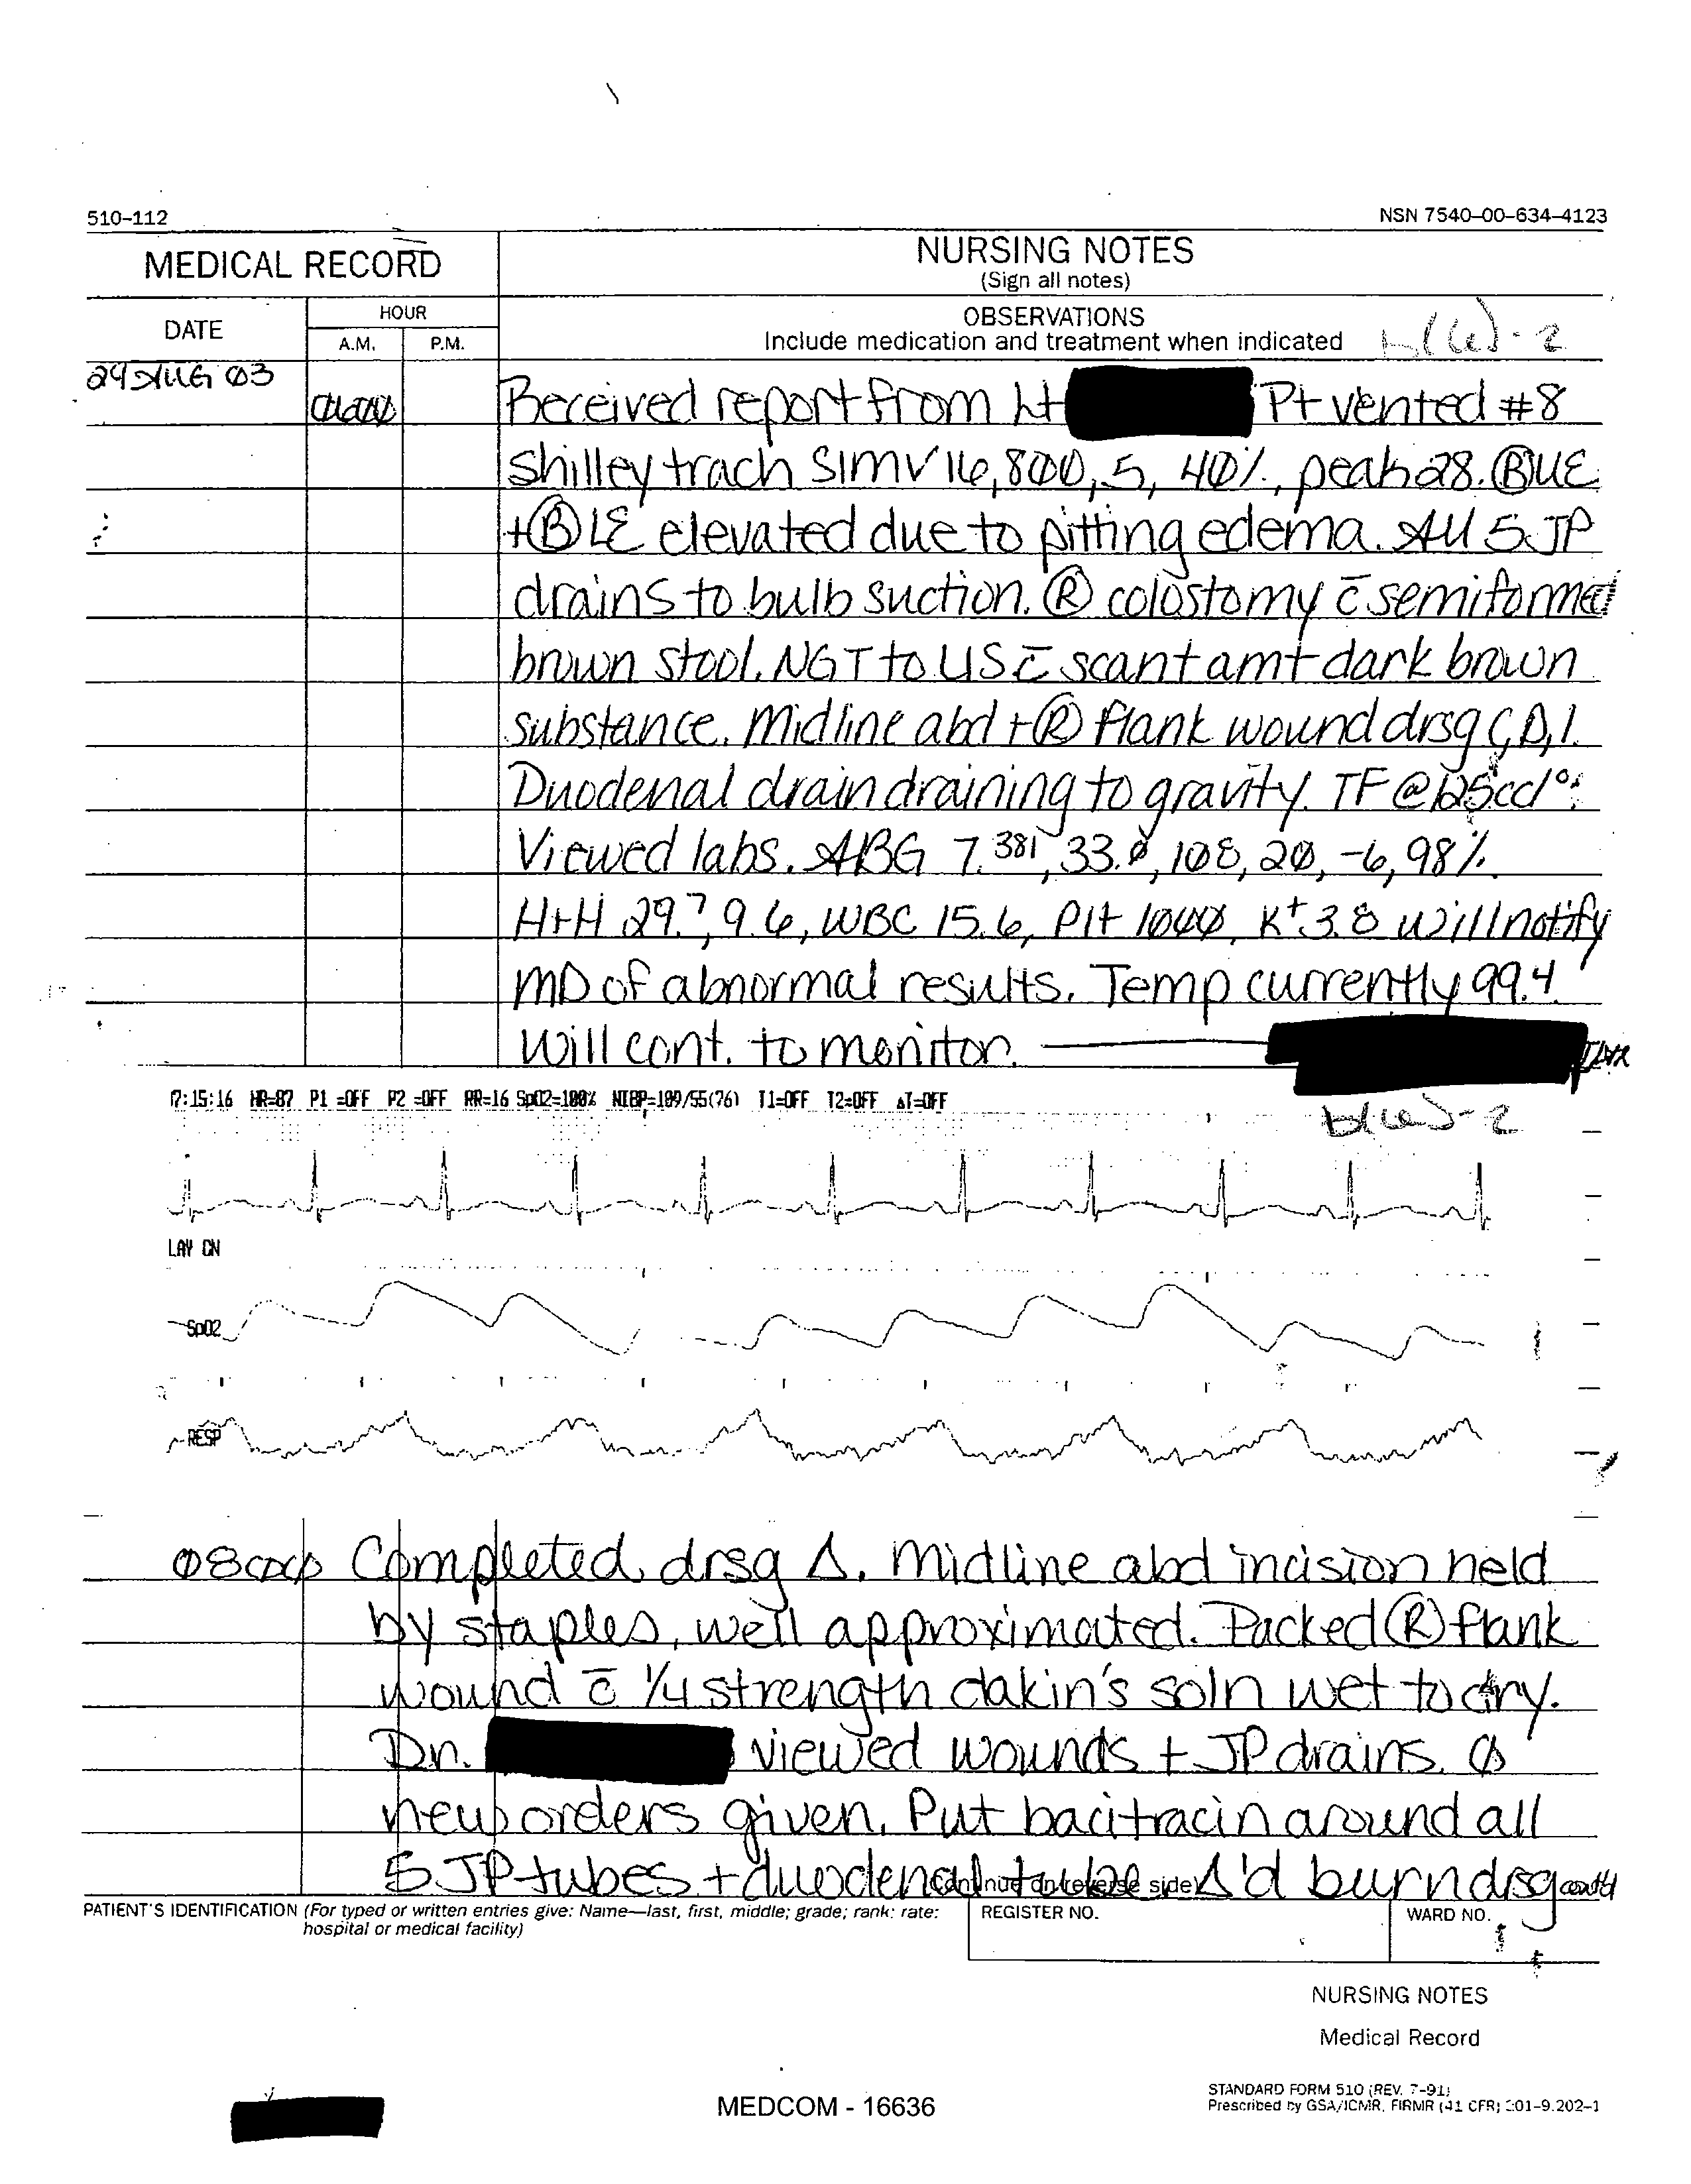 510-112
NSN 7540-00-634-4123
MEDICAL RECORD
NURSING NOTES
(Sign all notes)
DATE
HOUR
A.M.
P.M.
OBSERVATIONS
Include medication and treatment when indicated
b(6)-2
29 AUG 03
Received report from Lt Pt vented #8
shilley trach SIMV 16, 800, 5, 40%, peak 28. Ⓑ UE
+ Ⓑ LE elevated due to pitting edema. All 5 JP
drains to bulb suction. Ⓡ colostomy c̄ semiformed
brown stool. NGT to LIS c̄ scant amt dark brown
substance. Midline abd + Ⓡ flank wound drsg C,D,I.
Duodenal drain draining to gravity. TF @ 125cc/°.
Viewed labs. ABG 7.381, 33.0, 108, 20, -6, 98%.
H+H 29.7, 9.6, WBC 15.6, Plt K+ 3.8 will notify
MD of abnormal results. Temp currently 99.4.
Will cont. to monitor.
17:15:16 HR=87 P1 =OFF P2 =OFF RR=16 SpO2=100% NIBP=109/55(76) T1=OFF T2=OFF ΔT=OFF
b(6)-2
SpO2
RESP
0800 Completed drsg Δ. Midline abd incision held
by staples, well approximated. Packed Ⓡ flank
wound c̄ 1/4 strength dakin's soln wet to dry.
Dr. viewed wounds + JP drains. Ø
new orders given. Put bacitracin around all
5 JP tubes + duodenal tube. Δ'd burn drsg
(Continue on reverse side)
PATIENT'S IDENTIFICATION (For typed or written entries give: Name—last, first, middle; grade; rank; rate;
hospital or medical facility)
REGISTER NO.
WARD NO.
NURSING NOTES
Medical Record
STANDARD FORM 510 (REV. 7-91)
Prescribed by GSA/ICMR, FIRMR (41 CFR) 201-9.202-1
MEDCOM - 16636